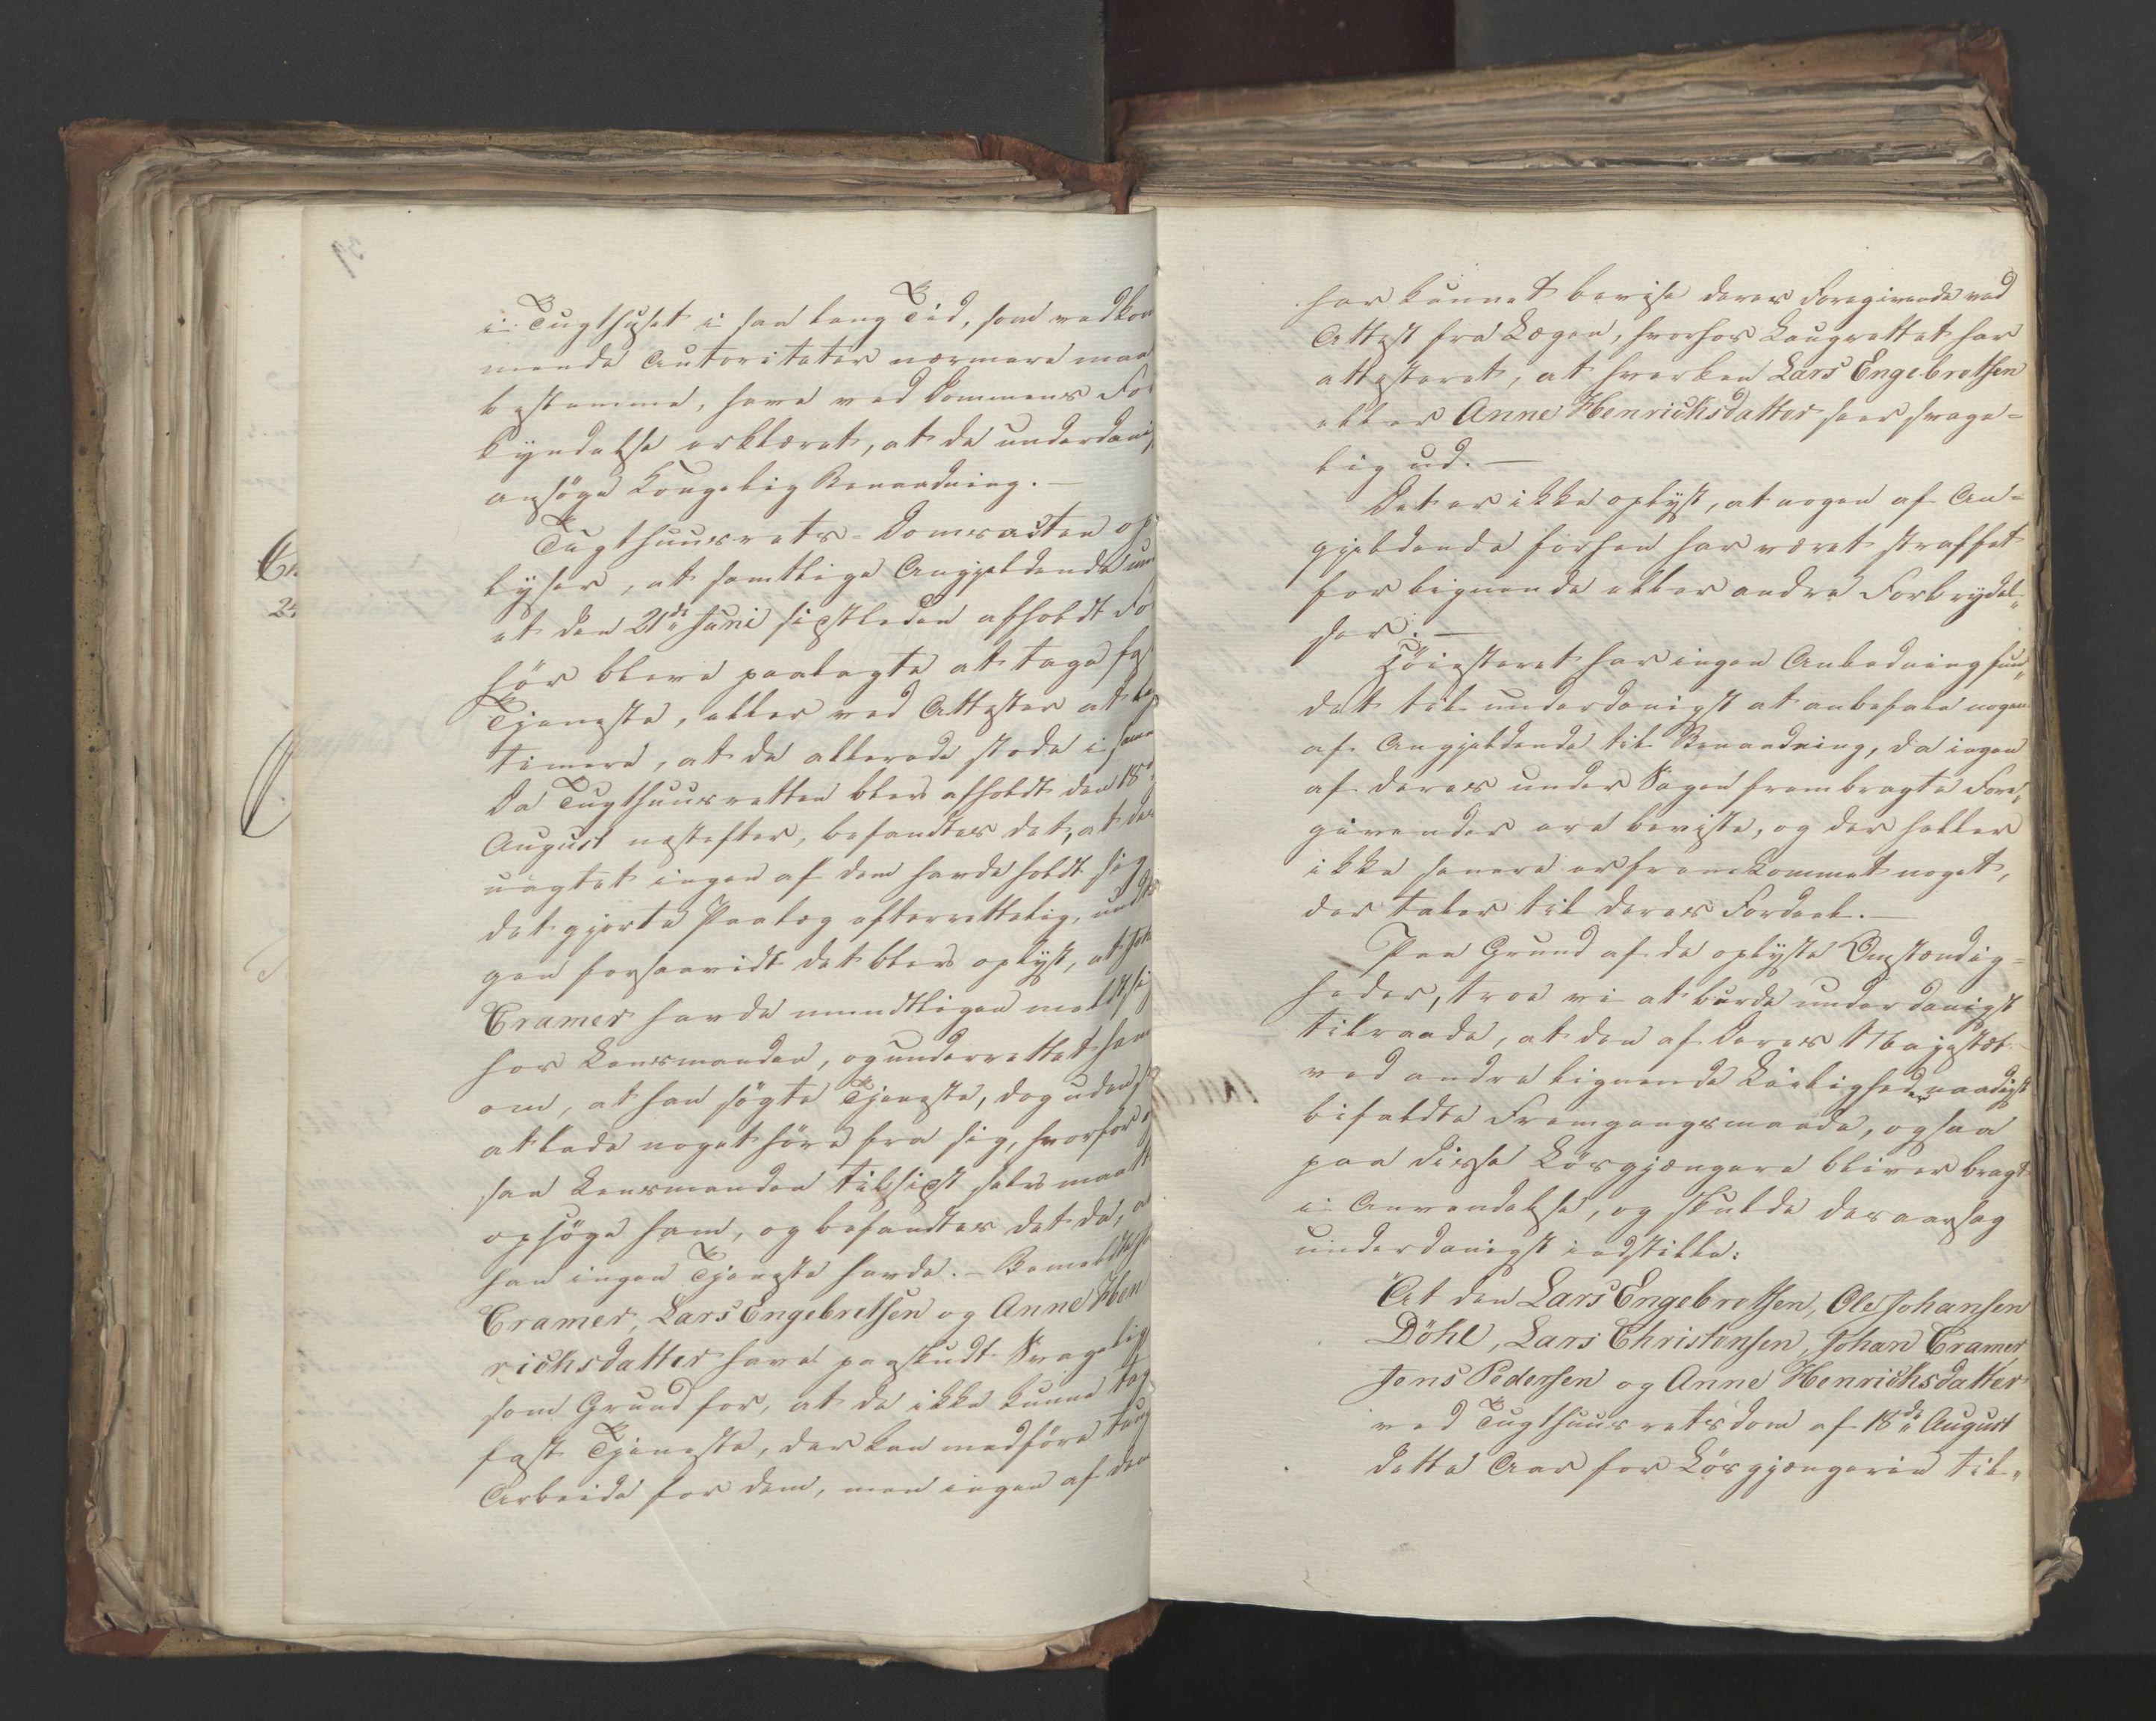 i Tugthuset i saa lang Tid, som vedkom
mende Autoriteter nærmere maa
bestemme, have ved Dommens For
kyndelse erklæret, at de underdanig
ansöge Kongelig Benaadning. —
Tugthuusrets-Domsacten op
lyser, at samtlige Angjeldende un
et den 21de Juni sidstleden afholdt For
hör bleve paalagte at tage fast
Tjeneste, eller ved Attester at le
timere, at de allerede stode i saad
Da Tugthuusretten blev afholdt den 18de
August næstefter, befandtes det, at der
uagtet ingen af dem havde holdt sig
det gjorte Paalæg efterrettelig, und
gen forsaavidt det blev oplyst, at Joh
Cramer havde mundtligen meldt sig
hos Lensmanden, og underrettet ham
om, at han sögte Tjeneste, dog uden s
at lade noget höre fra sig, hvorfor o
saa Lensmanden tilsidst selv maatte
opsöge ham, og befandtes det da, a
han ingen Tjeneste havde. – Bemeldte
Cramer, Lars Engebretsen og Anne Hen
richsdatter have paaskudt Svagelig
som Grund for, at de ikke kunne tag
fast Tjeneste, der kan medföre tung
Arbeide for dem, men ingen af dem
har kunnet bevise deres Foregivende ved
Attest fra Læge, hvorhos Laugrettet har
attesteret, at hverken Lars Engebretsen
eller Anne Henrichsdatter seer svage=
lig ud. —
Det er ikke oplyst, at nogen af An=
gjeldende forhen har været straffet
for lignende eller andre Forbrydel„
ser. —
Höiesteret har ingen Anledning fun„
det til underdanigst at anbefale nogen
af Angjeldende til Benaadning, da ingen
af deres under Sagen frembragte Fore„
givender ere beviste, og der heller
ikke senere er fremkommet noget,
der taler til deres Fordeel. —
Paa Grund af de oplyste Omstændig=
heder, troe vi at burde underdanigst
tilraade, at den af Deres Majestæt
ved andre lignende Leiligheder naadigst
bifaldte Fremgangsmaade, ogsaa
paa disse Lösgjængere bliver bragt
i Anvendelse, og skulde desaarsag
underdanigst indstille:
At den Lars Engebretsen, Ole Johansen
Döhl, Lars Christensen, Johan Cramer
Jens Pedersen og Anne Henrichsdatter
ved Tugthuusretsdom af 18de August
dette Aar for Lösgjængerie til„